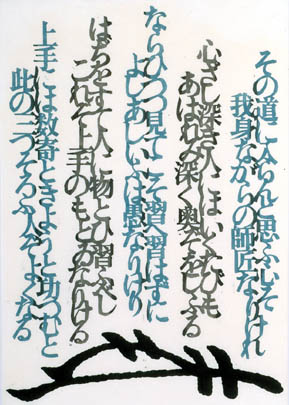 その道に入らんと思ふ心こそ
我身ながらの師匠なりけれ
心ざし深き人にはいくたびも
あはれみ深く奥ぞをしふる
ならひつつ見てこそ習へ習はずに
よしあしいふは愚なりけり
はぢをすて人に物とひ習ふべし
これぞ上手のもとゐなりける
上手には数寄ときようと功つむと
此の三つそろふ人ぞよくなる